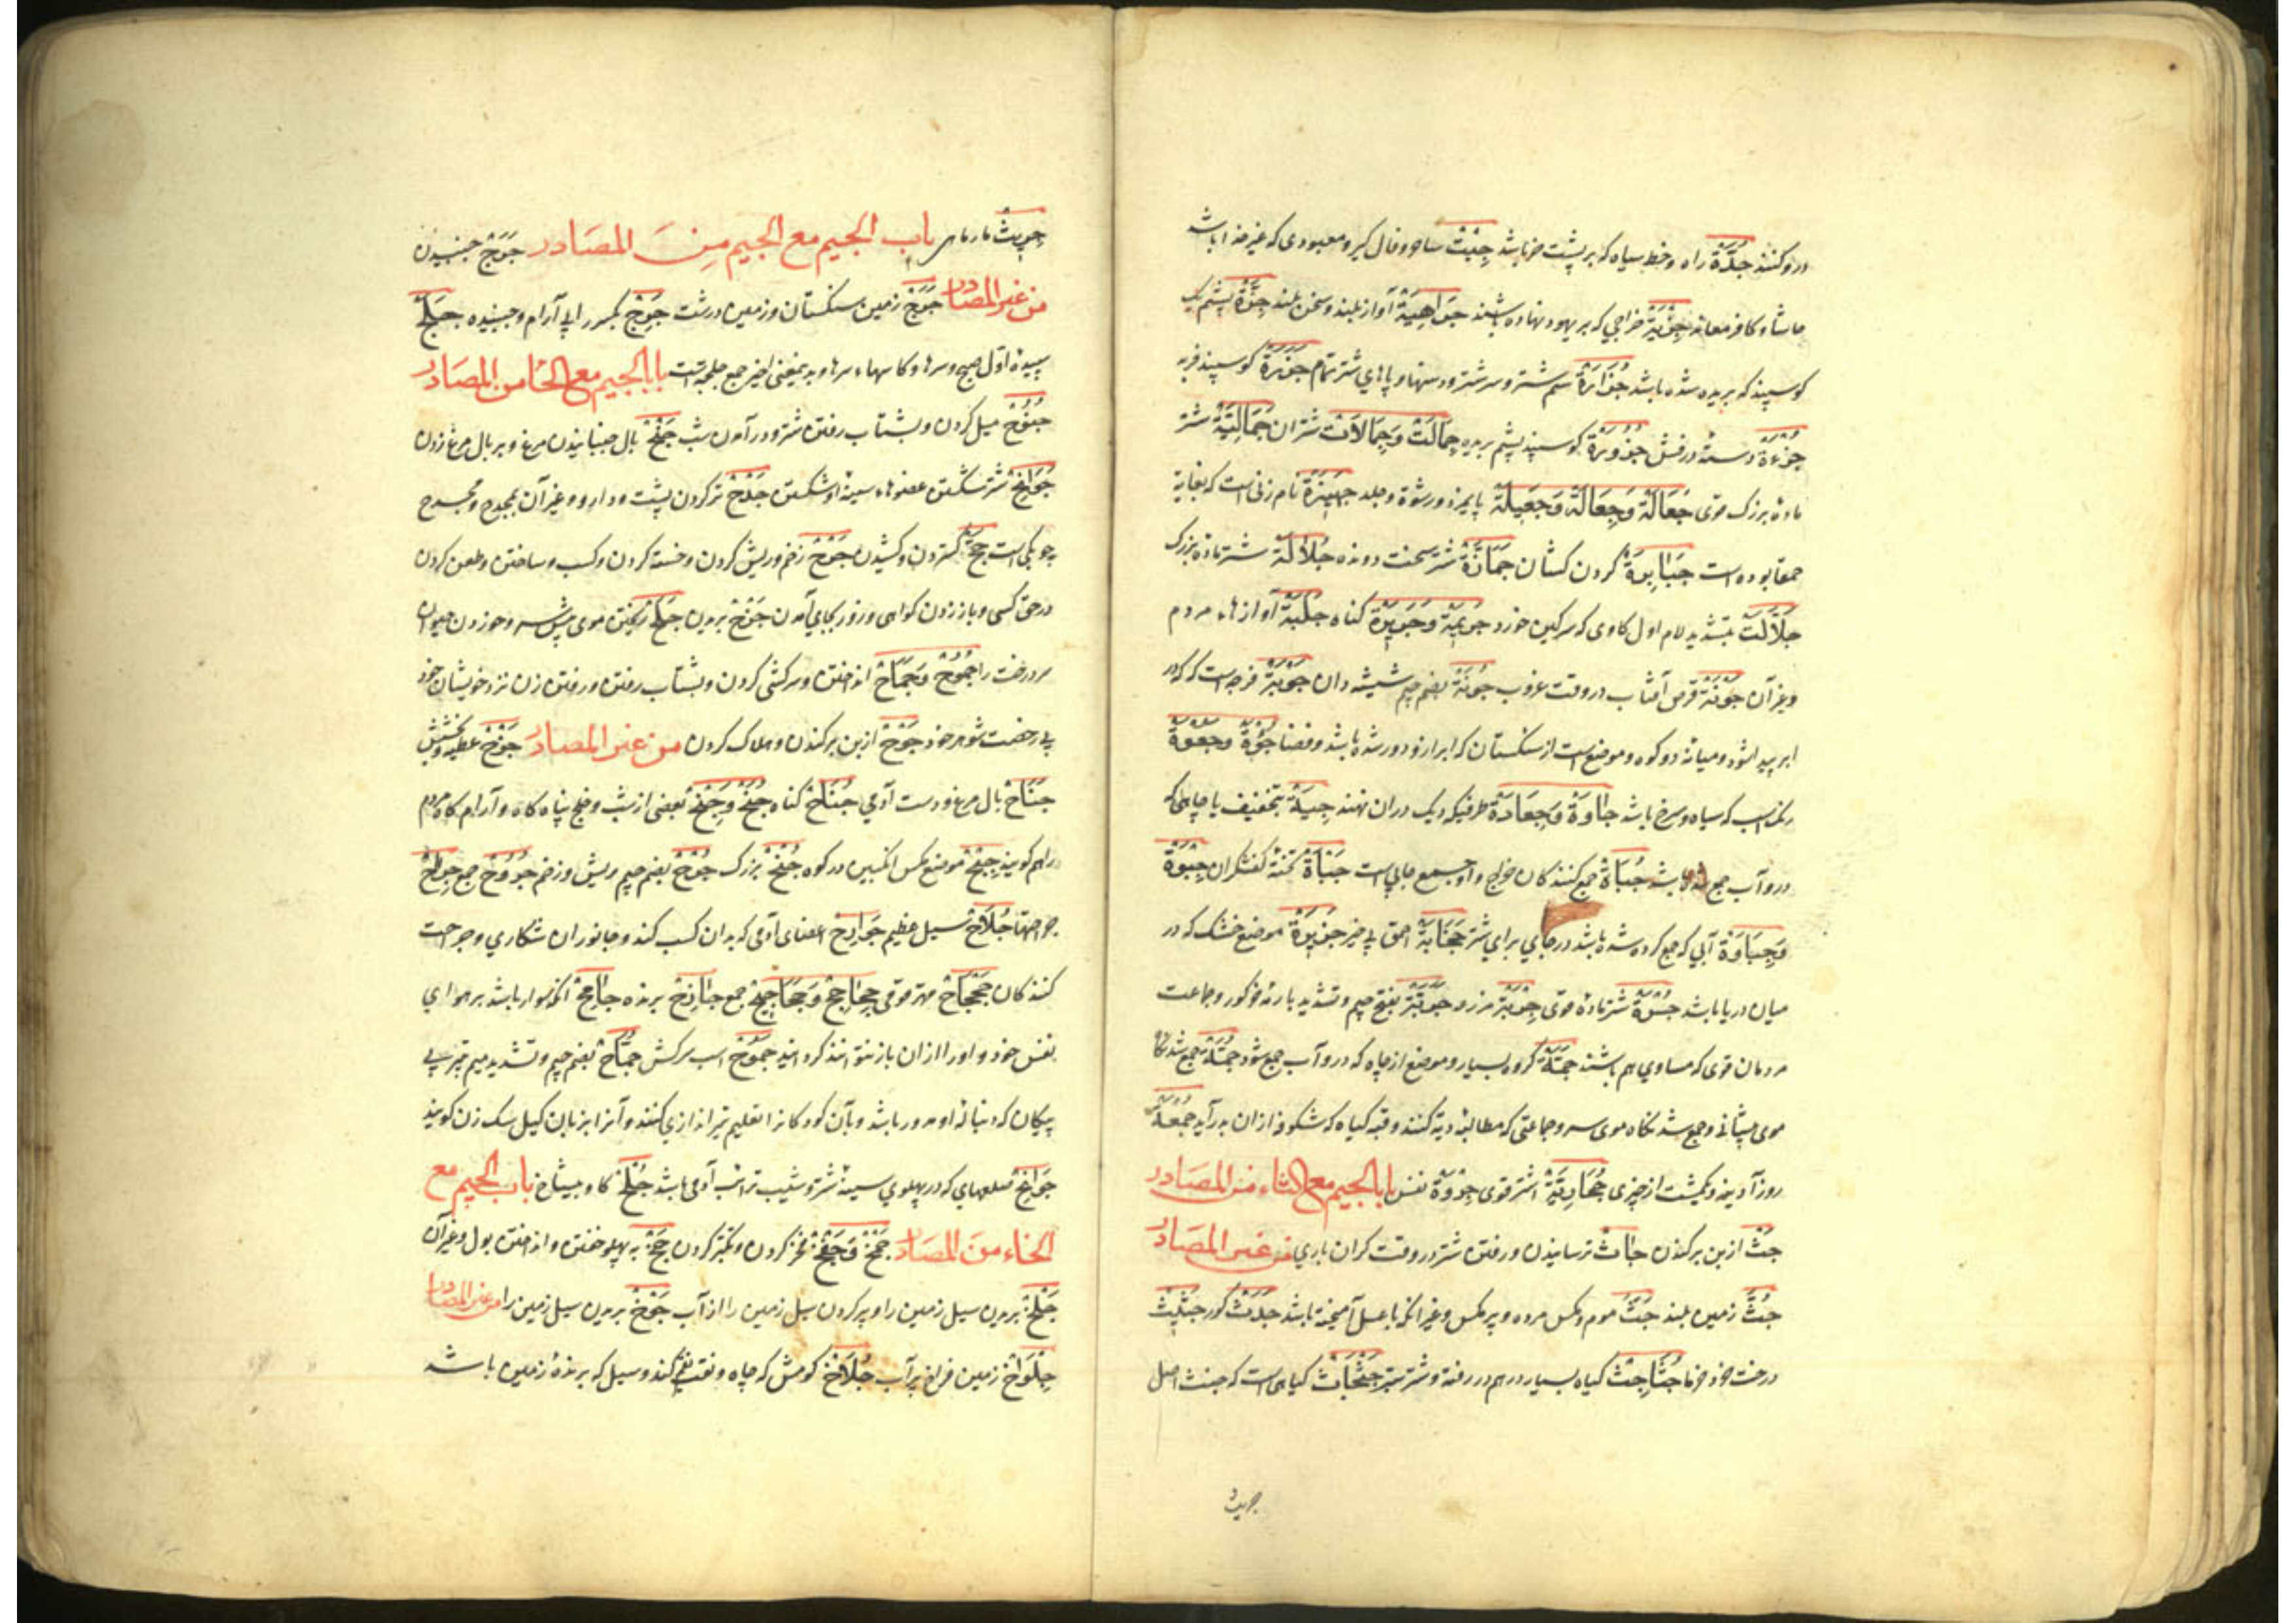 درو کنند جُدَّة راه و خط سیاه که بر پشت خر باشد جِبْت ساحر و فال گیر و معبودی که غیر خدا باشد
جِزْیَة خراجی که بر یهود نهاده باشند جَرَاهِیَة آواز بلند و سخن بلند جِزَّة پشم یک
گوسپند که بریده شده باشد جُزَارَة سم شتر و سر شتر و دستها و پاهای شتر تمام جَزَرَة گوسپند فربه
جُزْءَة دستهٔ درفش جَزُوزَة گوسپند پشم بریده جِمَالَت وَجِمَالَات شتران جُمَالِیَّة شتر
مادهٔ بزرگ قوی جُعَالَة وَجِعَالَة وَجَعِیلَة پایمزد و رشوة و جلد جَهِیزَة نام زنی است که بغایة
حمقا بوده است جَبَابِرَة گردن کشان جَمَّازَة شتر سخت دونده جُلَالَة شتر ماده بزرگ
جَلَّالَت بتشدید لام اول گاوی که سرگین خورد جَرِیمَة وَجَرِیرَة گناه جَلَبَة آوازهاء مردم
و غیر آن جَوْنَة قرص آفتاب در وقت غروب جُونَة بضم جیم شیشه دان جَوْبَة فرجه است که در
ابر پیدا شود و میانهٔ دو کوه و موضعی است از سنگستان که ابر ازو دور شده باشد و فضا
رنگ اسب که سیاه و سرخ باشد جِآوَة ظرفیکه دیک در آن نهند جِیَة بتخفیف یا چاهی که
درو آب جمع باشد جُبَاة جمع کنندکان خراج و او جمع جابی است جِبْوَة
وَجِبَاوَة آبی که جمع کرده شده باشد در جایی برای شتر جَخَابَة احمق بی خیر جَزِیرَة موضع خشک که در
میان دریا باشد جَسْرَة شتر مادهٔ قوی جِرْبَة مزرعه جَرَبَّة بفتح جیم و تشدید با رمهٔ خر کور و جماعت
مردمان قوی که مساوی هم باشند جَمَّة گروه بسیار و موضع از چاه که درو آب جمع شود جُمَّة جمع شدنگاه
موی پیشانی و جمع شدنگاه موی سر و جماعتی که مطالبهٔ دیة کنند و قبه گیاه که شکوفه از آن بدر آید جُمْعَة
روز آدینه و یکمشت از چیزی اشتر قوی جِرْوَة نفس باب الجیم مع الثاء من المصادر
جَثّ از بن برکندن جَأْث ترسانیدن و رفتن شتر در وقت کران باری من غیر المصادر
جُثّ زمین بلند جَثّ موم و مکس مرده و پر مکس و غیر آنکه با عسل آمیخته باشد جَدَث کور جَثِیث
درخت خرد خرما جُثَاجِث گیاه بسیار درهم در رفته و شتر ستبر جَثْجَاث گیاهی است که جنث اصل
جریث
جِرِّیث مار ماهی باب الجیم مع الجیم مِنَ المصَادر جَرَج جنبیدن
من غیر المصادر جَرَج زمین سنکستان و زمین درشت جَرِج بکسر را بی آرام و جنبنده جَلَج
سپیدهٔ اول صبح و سرها و کاسهاء سرها و بدین معنی اخیر جمع جلجه است باب الجیم مع الحا من المصادر
جُنُوح میل کردن و بشتاب رفتن شتر و در آمدن شب جَنْح بال جنبانیدن مرغ و بر بال مرغ زدن
شتر شکستن عضوهاء سینهٔ او شکستن جَدْح تر کردن پشت و دارو و غیر آن بمجدح و مجدح
چوبکی است جَحّ گستردن و کشیدن جَرْح زخم و ریش کردن و خسته کردن و کسب و ساختن و طعن کردن
در حق کسی و باز زدن کواهی و زور بجای آمدن جَزْح بریدن جَلَح ریختن موی پیش سر و خوردن حیوان
سر درخت را جُمُوح وَجِمَاح انداختن و سرکشی کردن و بشتاب رفتن و رفتن زن نزد خویشان خود
بی رخصت شوهر خود جَوْح از بن برکندن و هلاک کردن من غیر المصادر جَزْح عطیه و بخشش
جَنَاح بال مرغ و دست آدمی جُنَاح گناه جُنْح وَجِنْح بعضی از شب و جنح پناه گاه و آرام گاه مردم
را هم گویند جِبْح موضع مکس انگبین در کوه بزرگ جُرْح بضم جیم ریش و زخم جُرُوح جمع
جراحتها جُلَاح سیل عظیم جَوَارِح اعضای آدمی که بدان کسب کند و جانوران شکاری و جراحت
کنندکان جَحْجَاح مهتر قوی جَحَاجِح وَجَحَاجِیح جمع جَارِح برنده جَامِح آنکه سوار باشد بر هوای
نفس خود و او را از آن باز نتوانند کردانید جَمُوح اسب سرکش جُمَّاح بضم جیم و تشدید میم تیر بی
پیکان که دنبالهٔ او مدور باشد و بآن کودکان را تعلیم تیر اندازی کنند و آنرا بزبان کیل سک زن کویند
جَوَانِح ضلعهای که در پهلوی سینهٔ شتر و شیب ترائب آدمی باشد جُلْح گاو بیشاخ باب الجیم مع
الخاء منَ المصادر جَمْخ وَجَفْخ فخر کردن و تکبر کردن جَخّ به پهلو خفتن و انداختن بول و غیر آن
جَلْخ بریدن سیل زمین را و پر کردن سیل زمین را از آب جَوْخ بریدن سیل زمین را من غیر المصادر
جِلْوَاخ زمین فراخ پر آب جُلَاخ کومش که چاه و نقب کند و سیل که برندهٔ زمین باشد